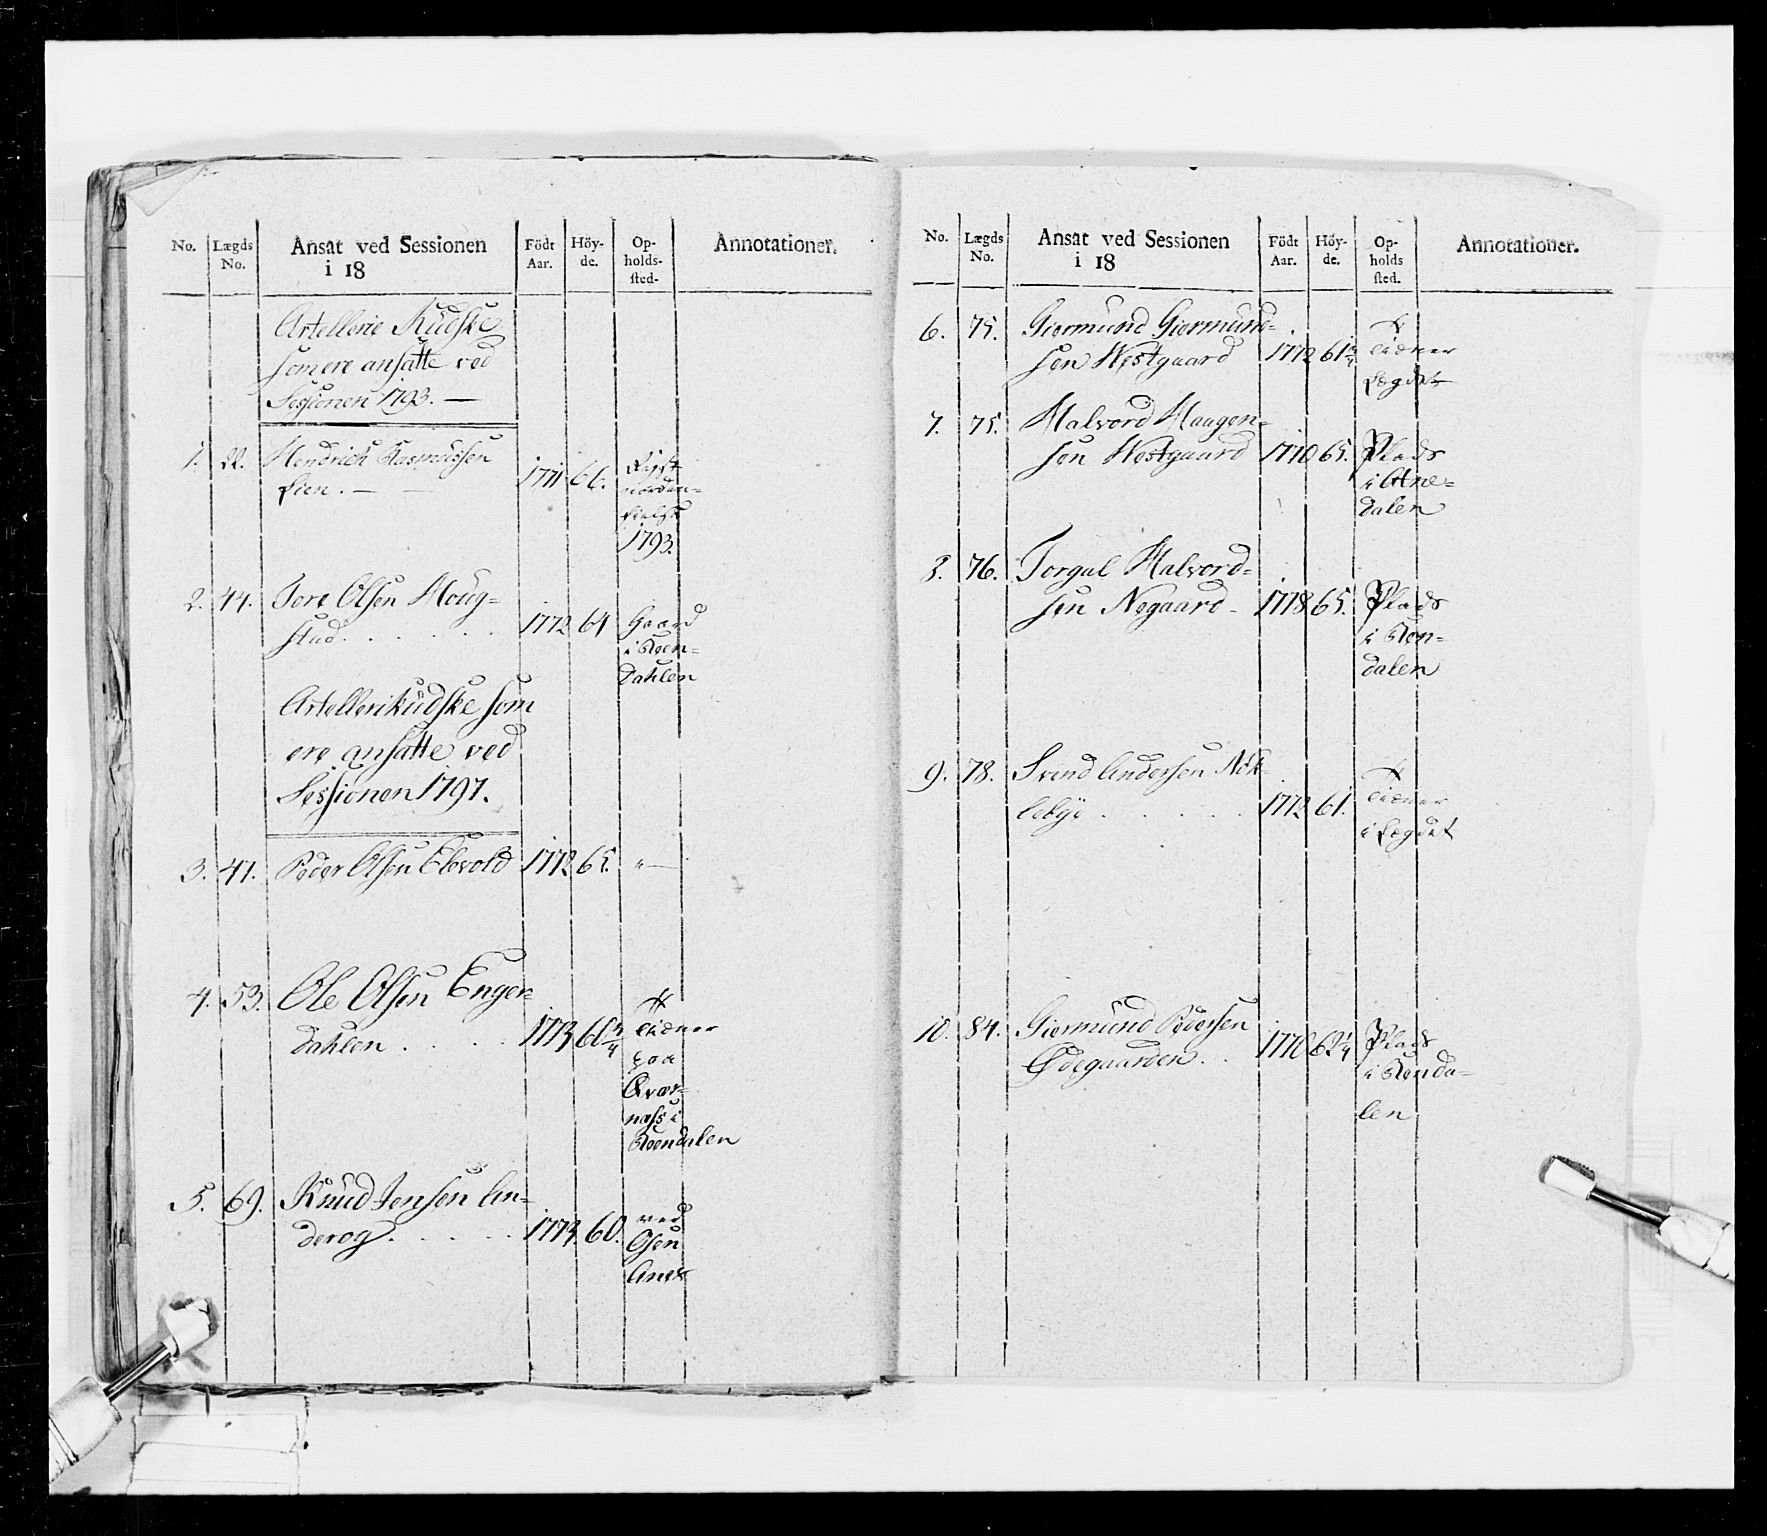 No. Lægds No. Ansat ved Sessionen i 18 Födt Aar. Höy-de. Op-holds-sted- Annotationer.
Artellerie Kudske
somere ansatte ved
Sessionen 1793. —
1. 22. Hendrich Rasmussen
Lien. — — 1771 66. Rÿst
nordan=
fielsk
1793.
2. 44. Tore Olsen Houg=
stad . . . . . . 1772 64 Gaard
i Reen=
dahlen
Artellerikudske som
ere ansatte ved
Sessionen 1797.
3. 47. Peder Olsen Elvold 1772 65. „ —
4. 53. Ole Olsen Enger=
dahlen . . . . 1773 60 3/4 tiæner
paa
Qvær=
næss i
Reendalen
5. 69. Knud Jensen An=
derog . . . . . 1773. 60. ved
Osen
Anex
No. Lægds No. Ansat ved Sessionen i 18 Födt Aar. Höy-de. Op-holds sted. Annotationer.
6. 75. Giermund Giermund=
sen Westgaard 1772 61 3/4 tiæner
Lægdet
7. 75. Halvord Haagen=
sen Westgaard 1770 65. Plads
i Atne=
dalen
8. 76. Torgal Halvord=
sen Negaard - 1778 65. Plads
i Ren=
dalen
9. 78. Svend Andersen Nök=
lebye . . . . . 1772 61. tiæner
i Lægdet
10. 84. Giermund Pedersen
Ødegaarden . . 1770 62 1/4 Plads
i Renda=
len